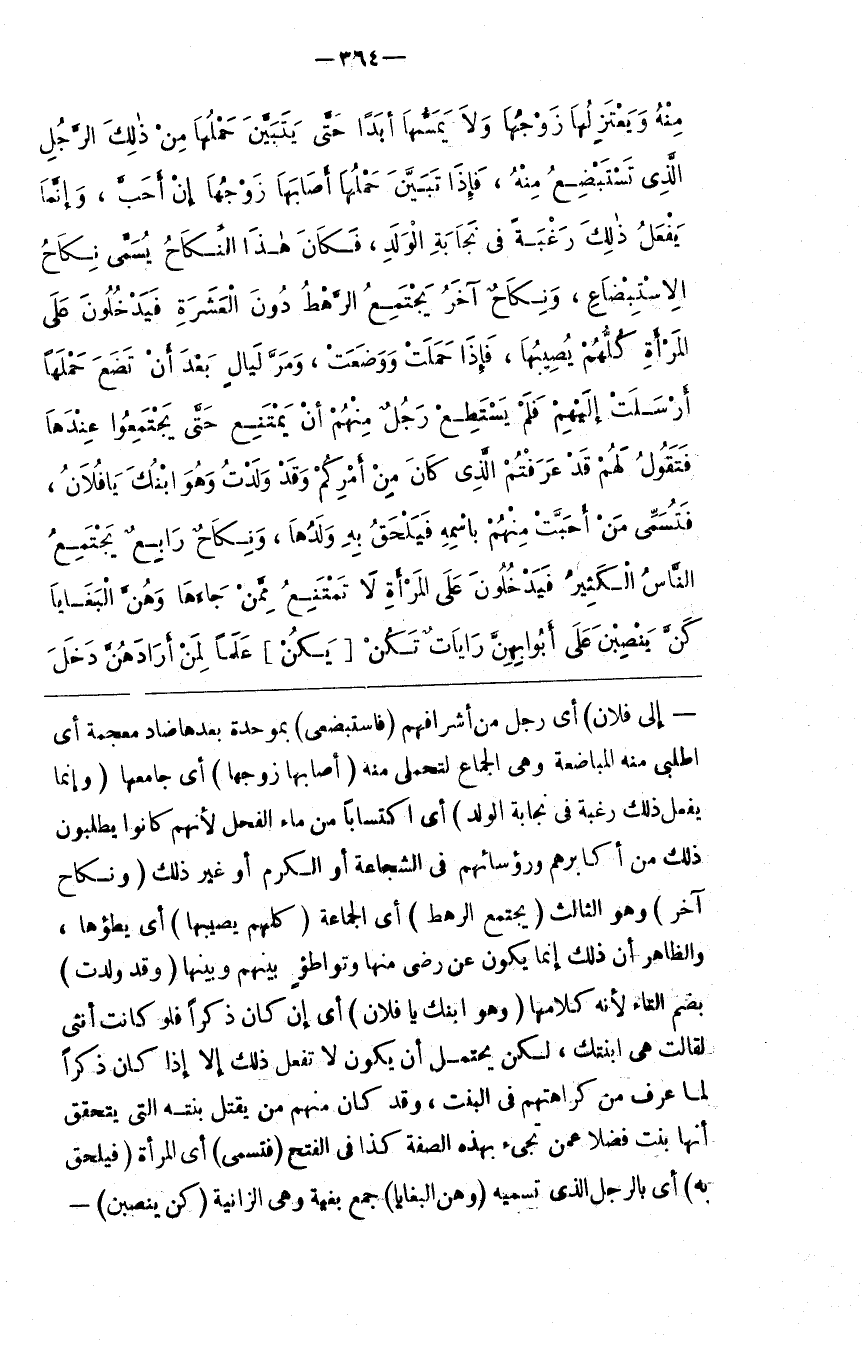 —٣٦٤—
مِنْهُ وَيَعْتَزِلُهَا زَوْجُهَا وَلاَ يَمَسُّهَا أَبَدًا حَتَّى يَتَبَيَّنَ حَمْلُهَا مِنْ ذٰلِكَ الرَّجُلِ
الَّذِى تَسْتَبْضِعُ مِنْهُ ، فَإِذَا تَبَيَّنَ حَمْلُهَا أَصَابَهَا زَوْجُهَا إِنْ أَحَبَّ ، وَإِنَّمَا
يَفْعَلُ ذٰلِكَ رَغْبَةً فى نَجَابَةِ الْوَلَدِ ، فَكَانَ هٰذَا النِّكَاحُ يُسَمَّى نِكَاحُ
الِاسْتِبْضَاعِ ، وَنِكَاحٌ آخَرُ يَجْتَمِعُ الرَّهْطُ دُونَ الْعَشَرَةِ فَيَدْخُلُونَ عَلَى
المَرْأَةِ كُلُّهُمْ يُصِيبُهَا ، فَإِذَا حَمَلَتْ وَوَضَعَتْ ، وَمَرَّ لَيالٍ بَعْدَ أَنْ تَضَعَ حَمْلَهَا
أَرْسَلَتْ إِلَيْهِمْ فَلَمْ يَسْتَطِعْ رَجُلٌ مِنْهُمْ أنْ يَمْتَنِع حَتَّى يَجْتَمِعُوا عِنْدَهَا
فَتَقُولُ لَهُمْ قَدْ عَرَفْتُمْ الَّذِى كَانَ مِنْ أَمْرِكُمْ وَقَدْ وَلَدْتُ وَهُوَ ابْنُكَ يَافُلَانُ ،
فَتُسَمِّى مَنْ أَحَبَّتْ مِنْهُمْ بِاسْمِهِ فَيَلْحَقُ بِهِ وَلَدُهَا ، وَنِكَاحٌ رَابِعٌ يَجْتَمِعُ
النَّاسُ الْكَثِيرُ فَيَدْخُلُونَ عَلَى المَرْأَةِ لَا تَمْتَنِعُ مِمَّنْ جَاءَهَا وَهُنَّ الْبَغَايَا
كُنَّ يَنْصِبْنَ عَلَى أَبْوَابِهِنَّ رَايَاتٌ تَكُنْ [ يَكُنْ ] عَلَمًا لِمَنْ أَرَادَهُنَّ دَخَلَ
— إلى فلان) أى رجل من أشرافهم (فاستبضعى) بموحدة بعدها ضاد معجمة أى
اطلبى منه المباضعة وهى الجماع لتحملى منه ( أصابها زوجها ) أى جامعها ( وإنما
يفعل ذلك رغبة فى نجابة الولد ) أى اكتساباً من ماء الفحل لأنهم كانوا يطلبون
ذلك من أكابرهم ورؤسائهم فى الشجاعة أو الكرم أو غير ذلك ( ونكاح
آخر ) وهو الثالث ( يجتمع الرهط ) أى الجماعة ( كلهم يصيبها ) أى يطؤها ،
والظاهر أن ذلك إنما يكون عن رضى منها وتواطؤٍ بينهم وبينها ( وقد ولدت )
بضم التاء لأنه كلامها ( وهو ابنك يا فلان ) أى إن كان ذكراً فلو كانت أنثى
لقالت هى ابنتك ، لكن يحتمل أن يكون لا تفعل ذلك إلا إذا كان ذكراً
لما عرف من كراهتهم فى البنت ، وقد كان منهم من يقتل بنته التى يتحقق
أنها بنت فضلا عمن تجىء بهذه الصفة كذا فى الفتح (فتسمى) أى المرأة ( فيلحق
به) أى بالرجل الذى تسميه (وهن البغايا) جمع بغية وهى الزانية ( كن ينصبن) —